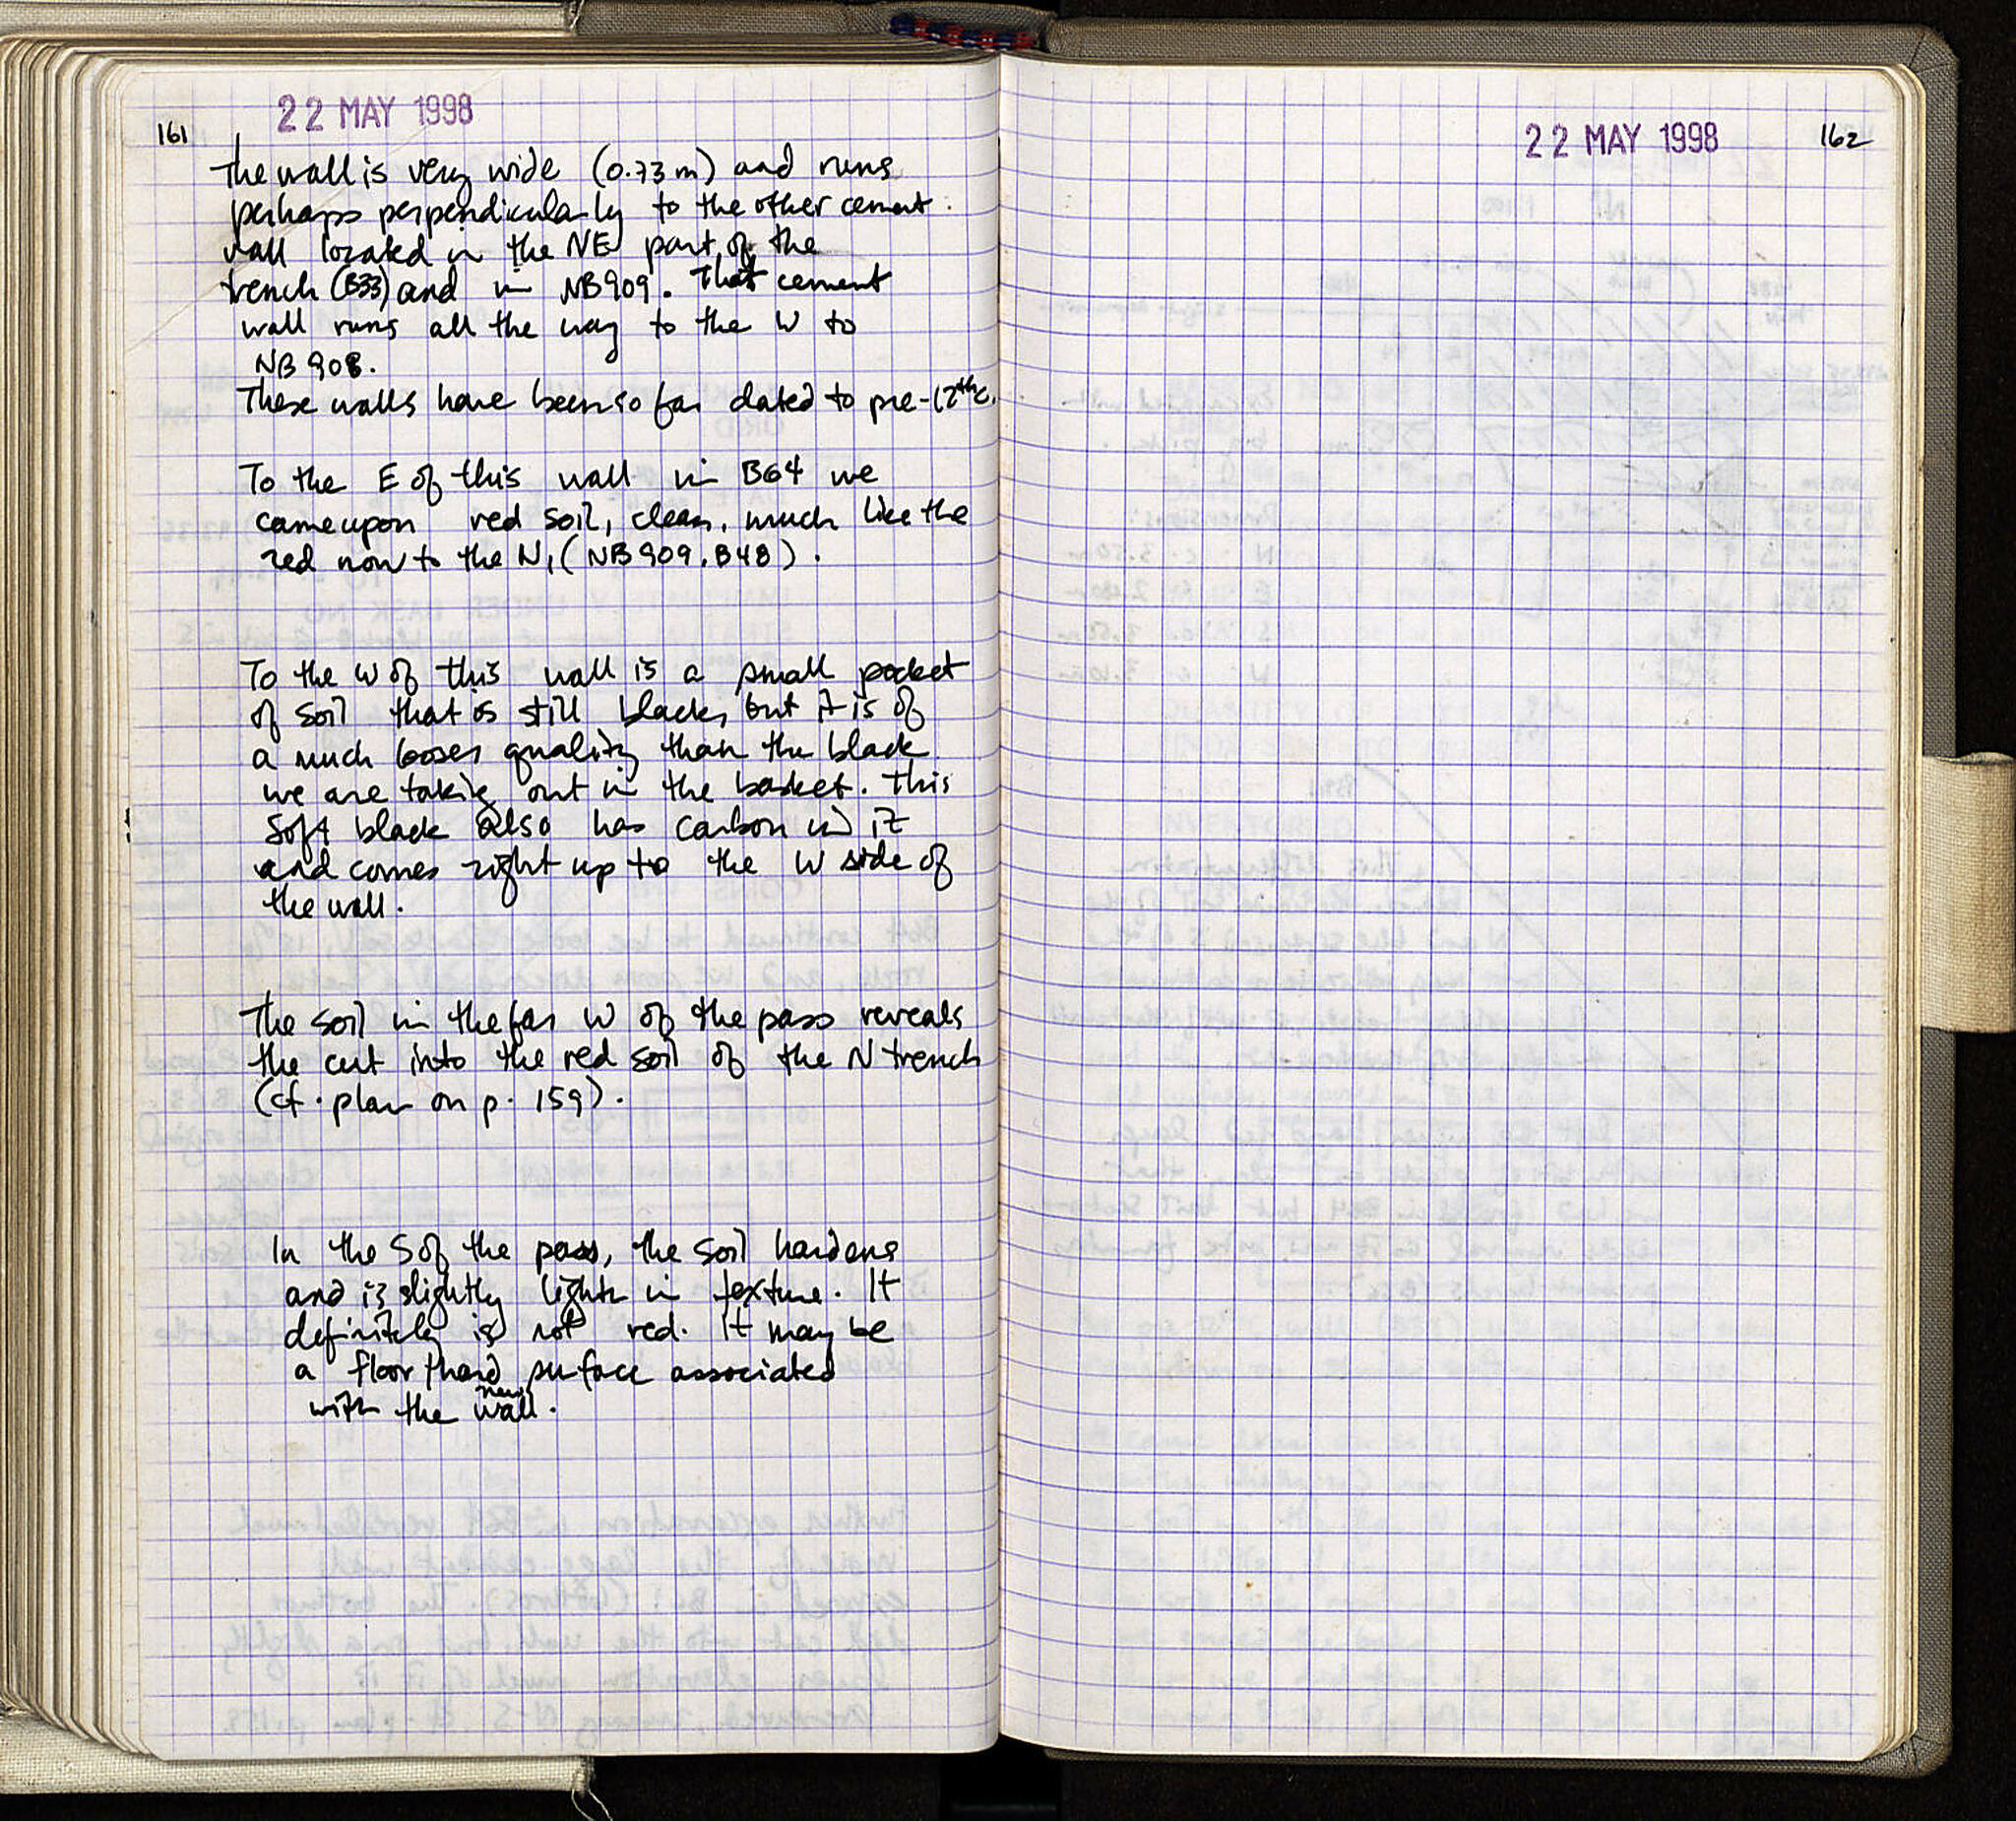 22 MAY 1998
161
The wall is very wide (0.73 m) and runs
perhaps perpendicularly to the other cement
wall located in the NE part of the
trench (B33) and in NB909. That cement
wall runs all the way to the W to
NB 908.
These walls have been so far dated to pre-12thc.
To the E of this wall in B64 we
came upon red soil, clean, much like the
red now to the N, (NB909.B48).
To the W of this wall is a small pocket
of soil that is still black, but it is of
a much looser quality than the black
we are taking out in the basket. This
soft black also has carbon in it
and comes right up to the W side of
the wall.
The soil in the far W of the pass reveals
the cut into the red soil of the N trench
(cf. plan on p. 159).
In the S of the pass, the soil hardens
and is slightly lighter in texture. It
definitely is not red. It may be
a floor/hard surface associated
with the new wall.
22 MAY 1998
162